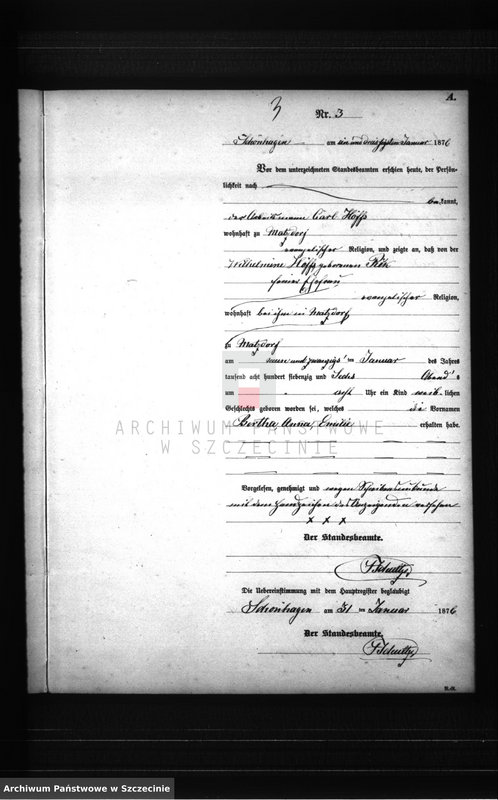 A.
3
Nr. 3
Schönhagen am ein und dreißigsten Januar 1876
Vor dem unterzeichneten Standesbeamten erschien heute, der Persön-
lichkeit nach
bekannt,
der Arbeitsmann Carl Höfs
wohnhaft zu Matzdorf
evangelischer Religion, und zeigte an, daß von der
Wilhelmine Höfs geborenen
seiner Ehefrau
evangelischer Religion,
wohnhaft bei ihm in Matzdorf
zu Matzdorf
am neun und zwanzigsten Januar des Jahres
tausend acht hundert siebenzig und Sechs Abends
um acht Uhr ein Kind weiblichen
Geschlechts geboren worden sei, welches die Vornamen
Bertha, Anna, Emilie erhalten habe.
ARCHIWUM PAŃSTWOWE
W SZCZECINIE
Vorgelesen, genehmigt und wegen Schreibensunkunde
mit dem Handzeichen des Anzeigenden versehen
x x x
Der Standesbeamte.
Die Uebereinstimmung mit dem Hauptregister beglaubigt
Schönhagen am 31 ten Januar 1876
Der Standesbeamte.
Archiwum Państwowe w Szczecinie